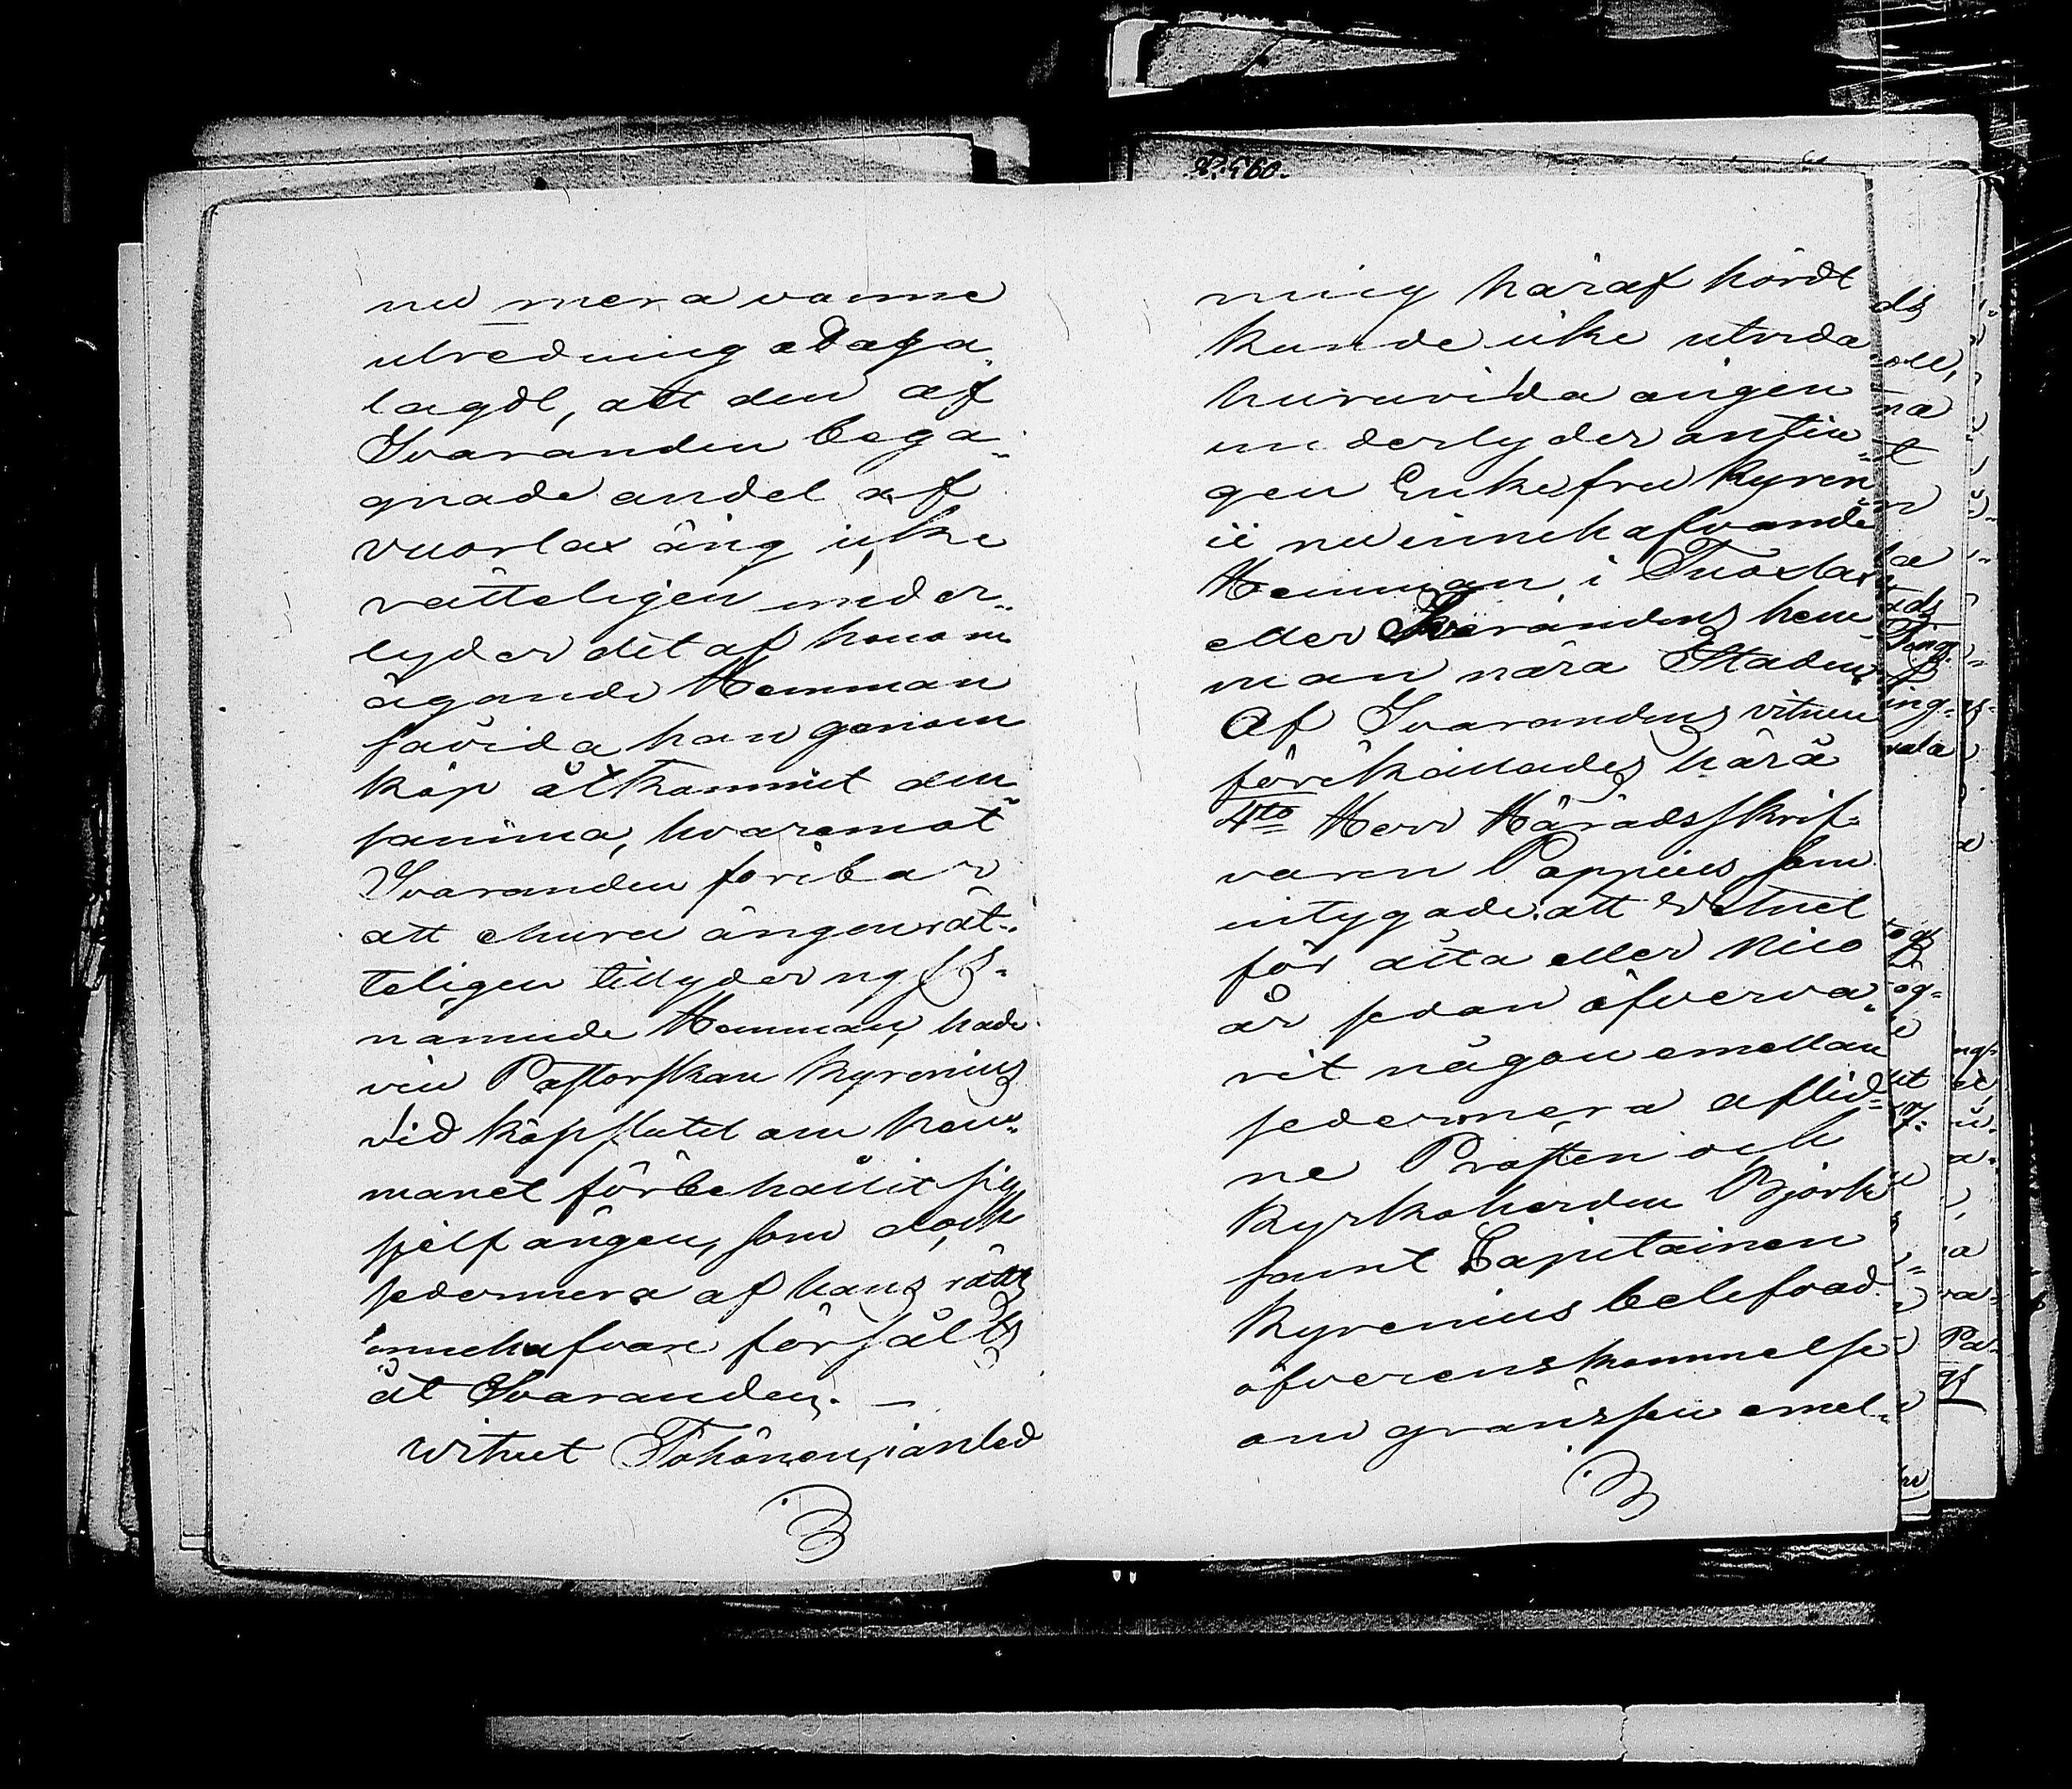 nu mera vunne
utredning adaga-
lagdt, att den af
Svaranden bega-
gnade andel af
vuorlax äng icke
rätteligen under-
lyder det af honom
ägande Hemman
såvida han genom
köp åtkommit den-
samma, hvaremot
Svaranden föribar
att ehuru ängen rät-
teligen tillyder nyss-
nämnde Hemman, hade
Pastorskan Kyrenius
vid köpslutet om hem-
manet förbehållit sig
sjelf ängen, som dock
sedermera af hans rätts
innehafvare försålts
åt Svaranden. —
Witnet Tohönen, i anled
ning häraf hördt
kunde icke utreda
huruvida ängen
underlyder antin-
gen Enkefru Kyren-
ii nu innehafvande
Hemman i Tuoxlax
eller Svarandens hem-
man nära Staden,
Af Svarandens vitnen
förekallades härå
4to Herr Häradsskrif-
varen Poppius, som
intygade: att Witnet
för åtta eller Nio
år sedan öfverva-
rit någon emellan
sedermera aflid-
ne Prosten och
Kyrkoherden Björk
samt Capitainen
Kyrenius belefvad
öfverenskommelse
om gränsen emel-